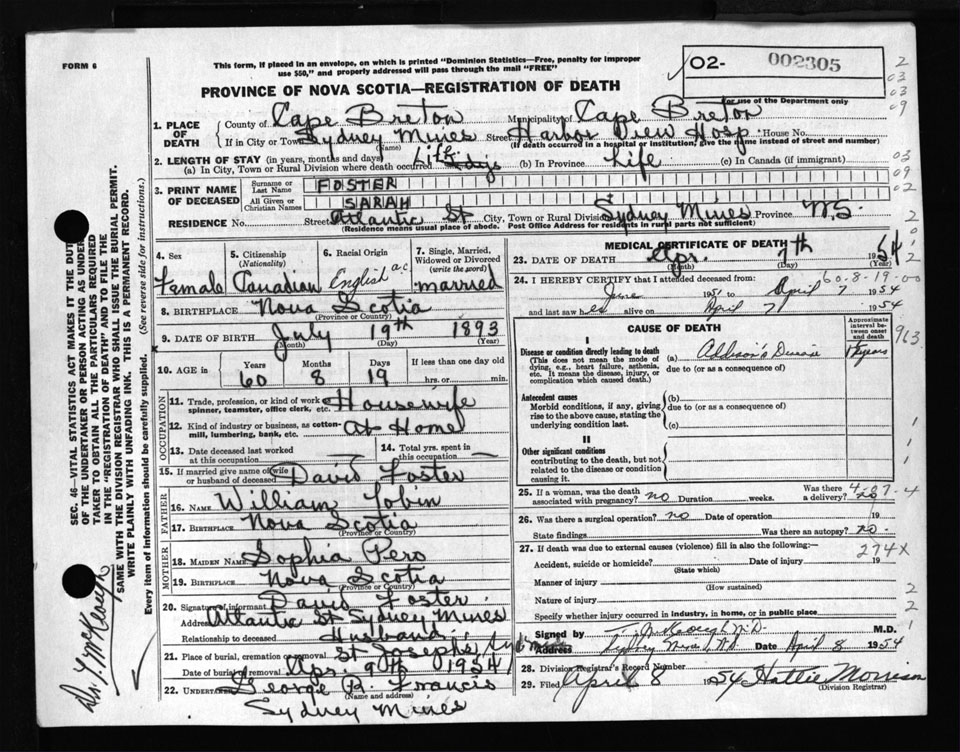 FORM 6
This form, if placed in an envelope, on which is printed "Dominion Statistics—Free, penalty for improper
use $50," and properly addressed will pass through the mail "FREE"
O2- 002305
For use of the Department only
PROVINCE OF NOVA SCOTIA—REGISTRATION OF DEATH
1. PLACE OF DEATH
County of Cape Breton Municipality of Cape Breton
If in City or Town Sydney Mines Street Harbor View Hosp House No.
(Name) (If death occurred in a hospital or institution, give the name instead of street and number)
2. LENGTH OF STAY (in years, months and days)
(a) In City, Town or Rural Division where death occurred Life days (b) In Province Life (c) In Canada (if immigrant)
3. PRINT NAME OF DECEASED
Surname or Last Name FOSTER
All Given or Christian Names SARAH
RESIDENCE No. Street Atlantic St City, Town or Rural Division Sydney Mines Province N.S.
(Residence means usual place of abode. Post Office Address for residents in rural parts not sufficient)
4. Sex Female
5. Citizenship (Nationality) Canadian
6. Racial Origin English a.c.
7. Single, Married, Widowed or Divorced (write the word) married
8. BIRTHPLACE Nova Scotia
(Province or Country)
9. DATE OF BIRTH July 19th 1893
(Month) (Day) (Year)
10. AGE in Years Months Days If less than one day old
60 8 19 hrs. or min.
OCCUPATION
11. Trade, profession, or kind of work as spinner, teamster, office clerk, etc. Housewife
12. Kind of industry or business, as cotton-mill, lumbering, bank, etc. At Home
13. Date deceased last worked at this occupation —
14. Total yrs. spent in this occupation —
15. If married give name of wife or husband of deceased David Foster
FATHER
16. NAME William Tobin
17. BIRTHPLACE Nova Scotia
MOTHER
18. MAIDEN NAME Sophia Pero
19. BIRTHPLACE Nova Scotia
(Province or Country)
20. Signature of informant David Foster
Address Atlantic St Sydney Mines
Relationship to deceased Husband
21. Place of burial, cremation or removal St Josephs,
Date of burial or removal Apr 9th 1954
22. Undertaker George R. Francis
(Name and address)
Sydney Mines
MEDICAL CERTIFICATE OF DEATH
23. DATE OF DEATH Apr. 7th 1954
(Month) (Day) (Year)
60-8-19-00
24. I HEREBY CERTIFY that I attended deceased from
June 1951 to April 7 1954
and last saw her alive on April 7 1954
CAUSE OF DEATH
Approximate interval between onset and death
I
Disease or condition directly leading to death (a) Addison's Disease years
(This does not mean the mode of dying, e.g., heart failure, asthenia, etc. It means the disease, injury, or complication which caused death.)
due to (or as a consequence of)
Antecedent causes
Morbid conditions, if any, giving rise to the above cause, stating the underlying condition last.
(b)
due to (or as a consequence of)
(c)
II
Other significant conditions
contributing to the death, but not related to the disease or condition causing it.
25. If a woman, was the death associated with pregnancy? no Duration weeks. Was there a delivery? no
26. Was there a surgical operation? no Date of operation 19
State findings Was there an autopsy? no
27. If death was due to external causes (violence) fill in also the following:—
274X
Accident, suicide or homicide? Date of injury 19
(State which)
Manner of injury
(How sustained)
Nature of injury
Specify whether injury occurred in industry, in home, or in public place
Signed by T.J. McKeough M.D. M.D.
Address Sydney Mines, N.S. Date April 8 1954
28. Division Registrar's Record Number
29. Filed April 8 1954 Hattie Morrison
(Division Registrar)
SEC. 46 VITAL STATISTICS ACT MAKES IT THE DUTY
OF THE UNDERTAKER OR PERSON ACTING AS UNDER-
TAKER TO OBTAIN ALL THE PARTICULARS REQUIRED
IN THE "REGISTRATION OF DEATH" AND TO FILE THE
SAME WITH THE DIVISION REGISTRAR WHO SHALL ISSUE THE BURIAL PERMIT.
WRITE PLAINLY WITH UNFADING INK. THIS IS A PERMANENT RECORD.
Every item of information should be carefully supplied. (See reverse side for instructions.)
Dr. T. McKeough
2
03
03
09
03
09
02
963